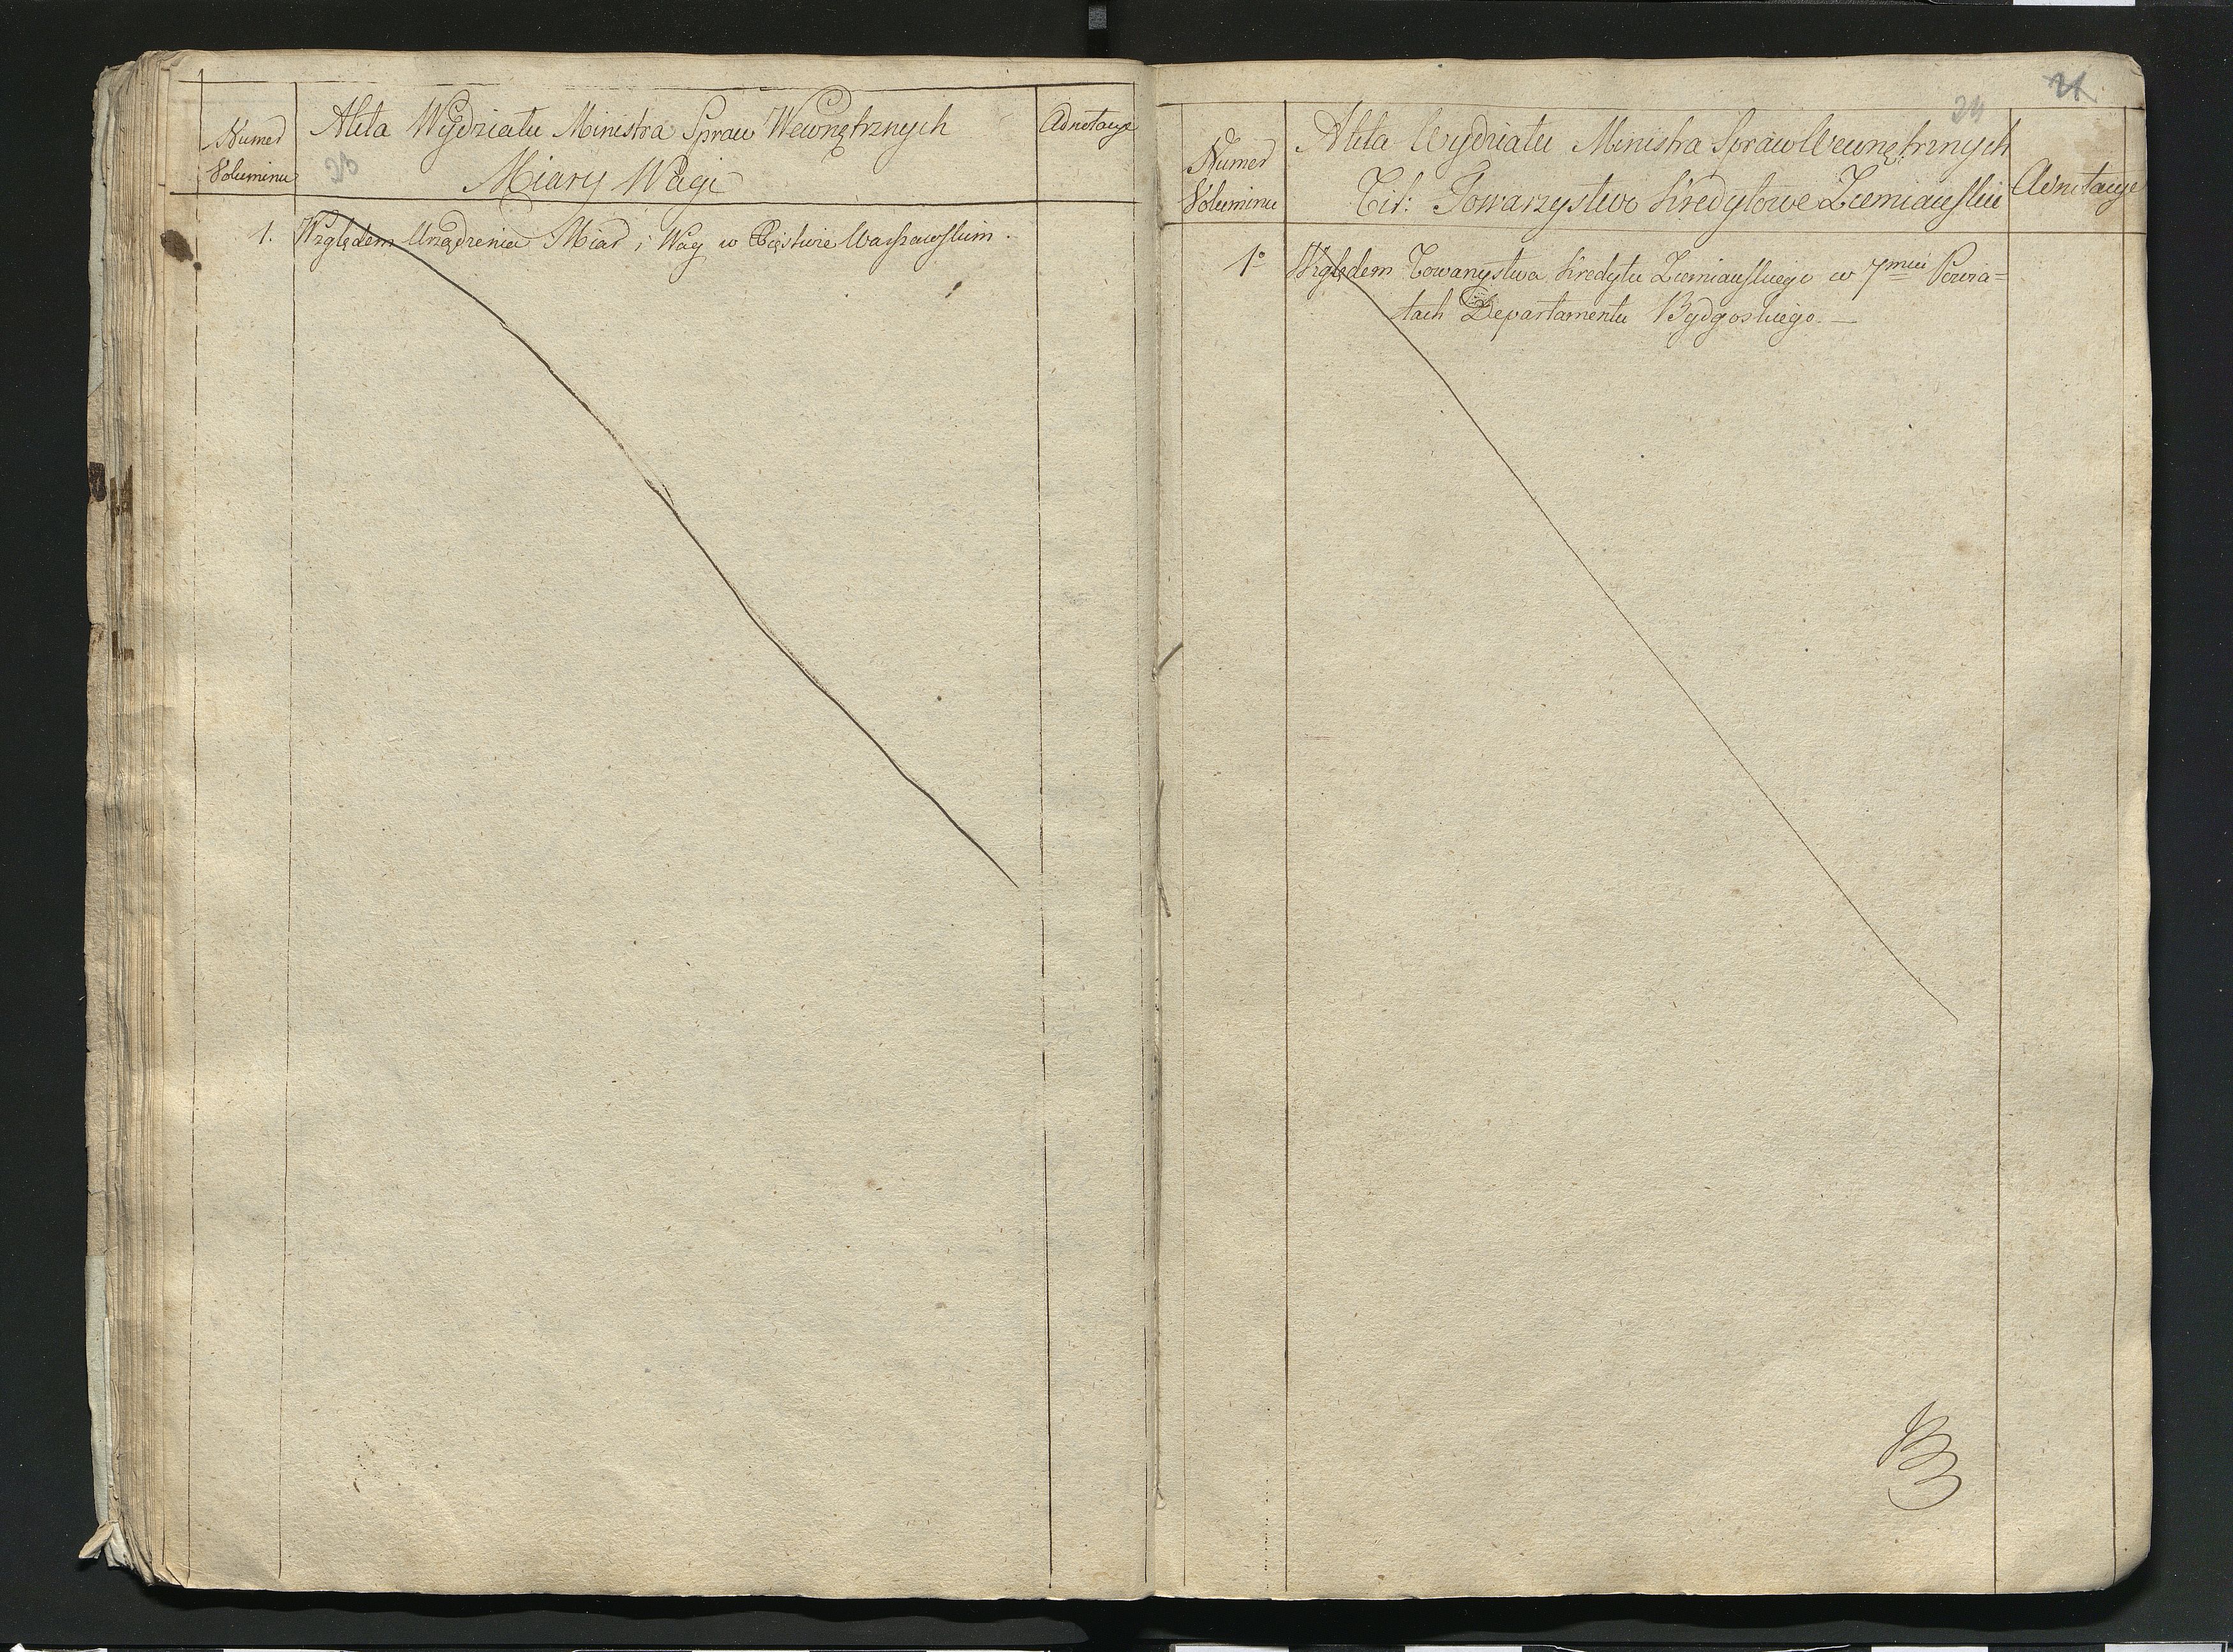 Numer
Voluminu
Akta Wydziału Ministra Spraw Wewnętrznych
23
Miary Wagi
Adnotacye
1. Względem Urządzenia Miar i Wag w Xięstwie Warszawskim.
21.
24
Numer
Voluminu
Akta Wydziału Ministra Spraw Wewnętrznych
Tit: Towarzystwo Kredytowe Ziemianskie
Adnotacye
1o Względem Towarzystwa Kredytu Ziemianskiego w 7miu Powia=
tach Departamentu Bydgoskiego. —